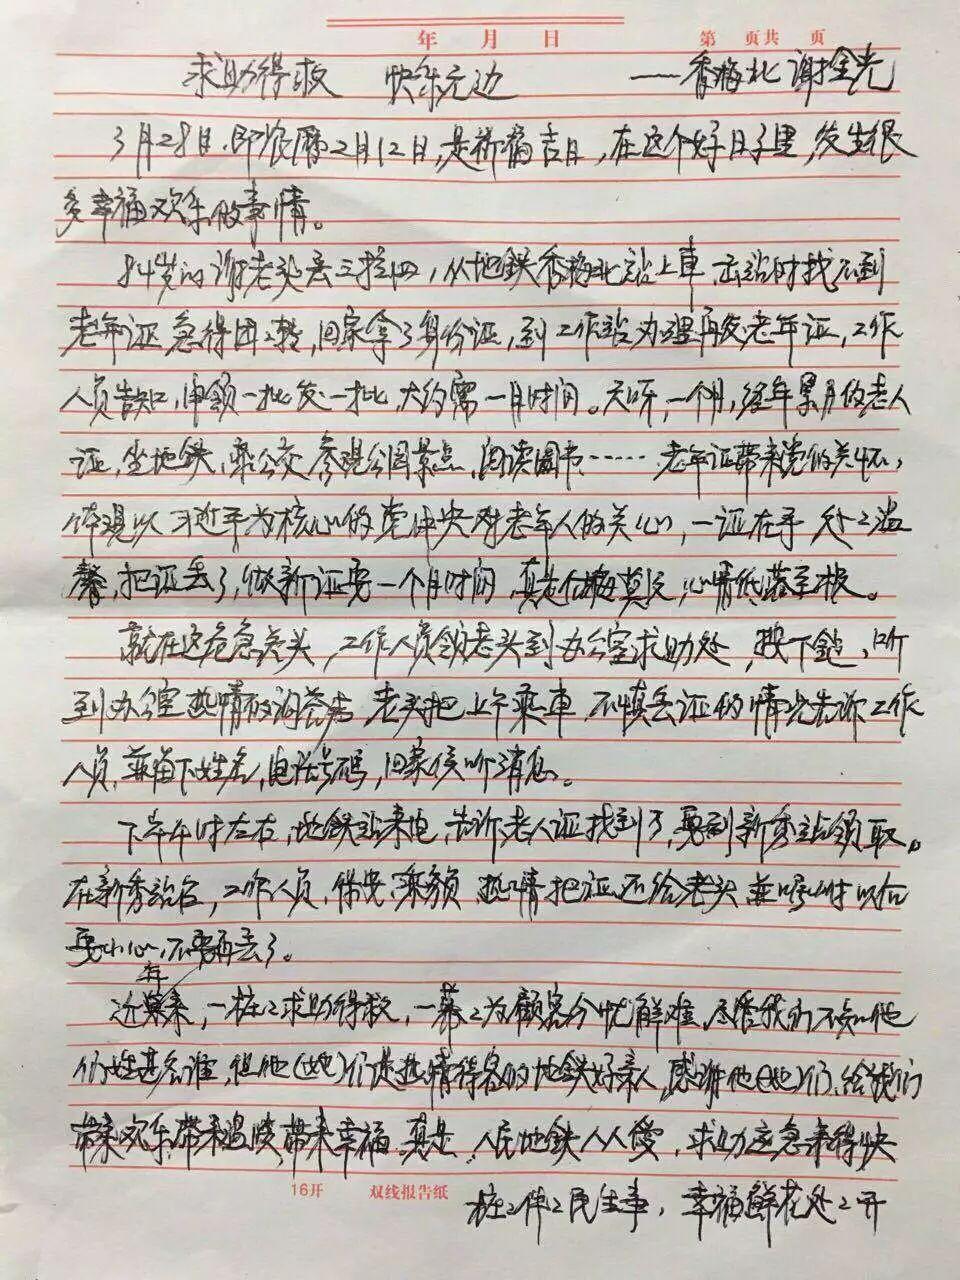 年 月 日
第 页共 页
求助得救 快乐无边 ——香梅北 谢金光
3月28日.即农历2月12日,是祈福吉日,在这个好日子里,发生很
多幸福欢乐的事情。
84岁的谢老头丢三拉四,从地铁香梅北站上車,出站时找不到
老年证,急得团团转,回家拿了身份证,到工作站办理再发老年证,工作
人员告知,申领一批发一批,大约需一月时间。天呀,一个月,经年累月的老人
证,坐地铁,乘公交,参观公园景点,阅读图书……老年证带来党的关怀,
体现以习近平为核心的党中央对老年人的关心,一证在手 处处温
馨,把证丢了,做新证要一个月时间,真是后悔莫及,心情低落至极。
就在这危急关头,工作人员领老头到办公室求助处,按下铃,听
到办公室热情的询答声 老头把上午乘車 不慎丢证的情况告诉工作
人员,並留下姓名,电话号码,回家候听消息。
下午 时左右,地铁站来电,告诉老人证找到了,要到新秀站领取。
在新秀站台,工作人员,保安 热情把证还给老头 並 以后
要小心,不要再丢了。
近年来,一桩桩求助得救,一幕幕为顾客分忧解难,尽管我们不知他
们姓甚名谁,但他(她)们是热情待客的地铁好亲人,感谢他(她)们,给我们
带来欢乐,带来温暖,带来幸福.真是,人民地铁人人爱,求助应急来得快
桩桩件件民生事,幸福鲜花处处开
16开 双线报告纸